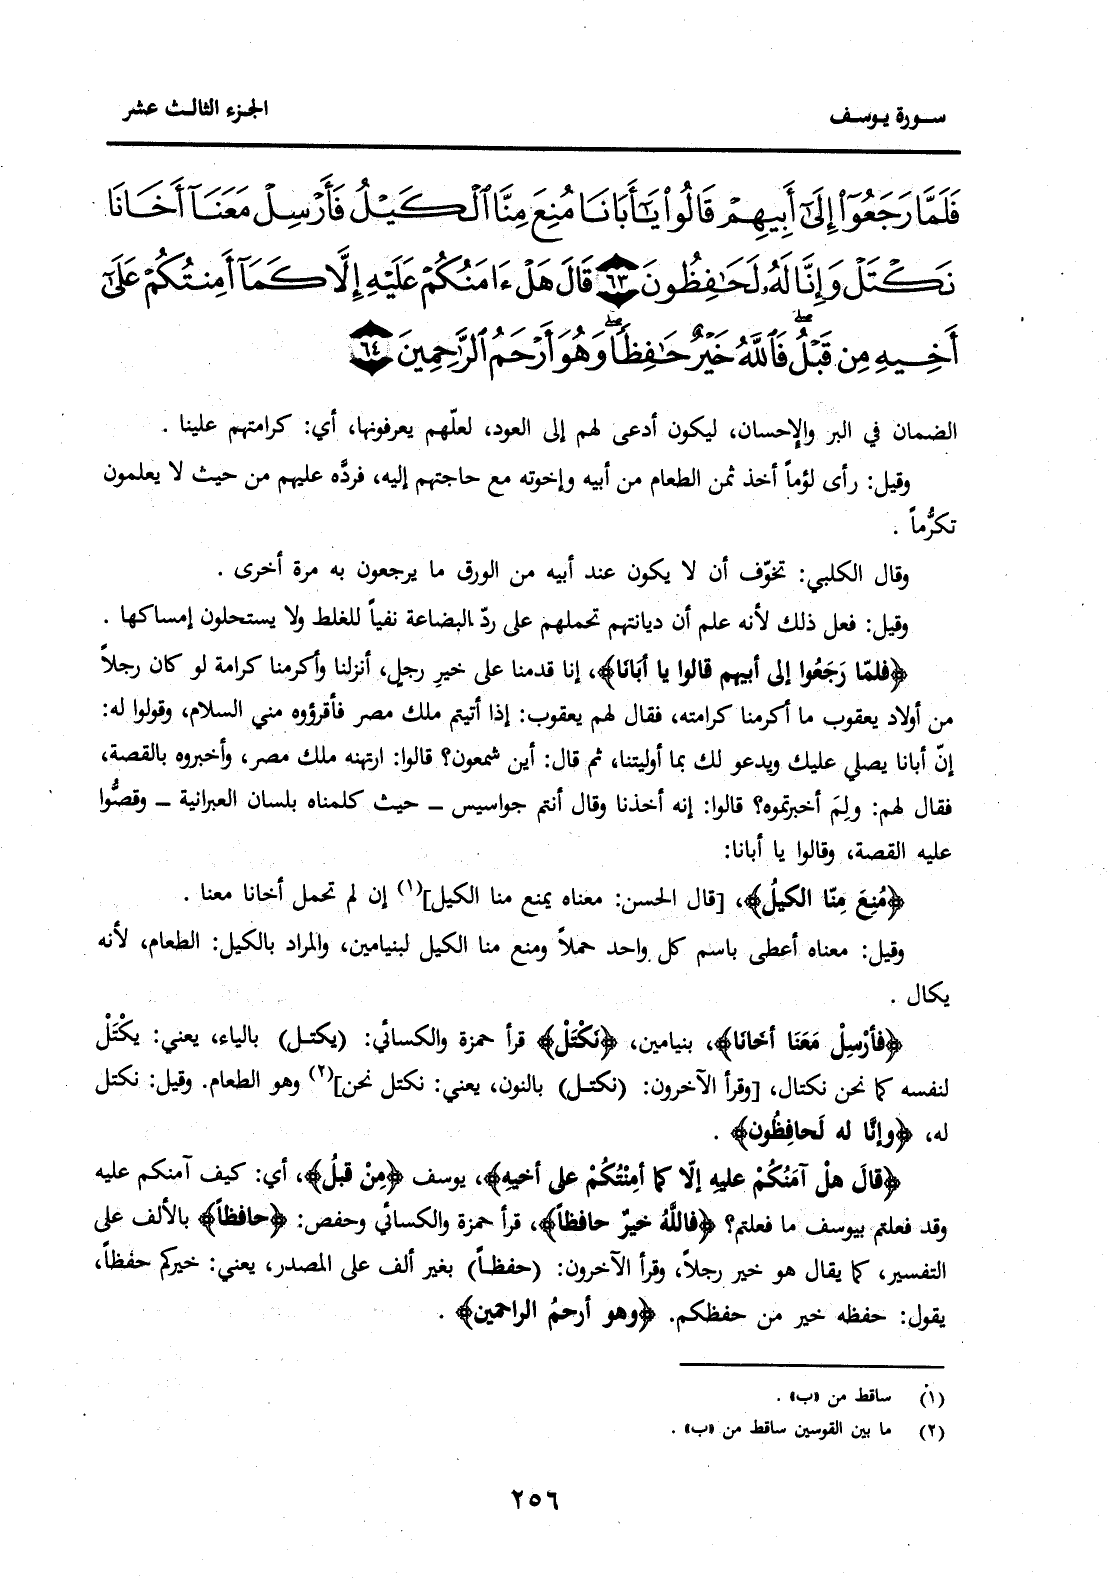 سورة يوسف
الجزء الثالث عشر
فَلَمَّا رَجَعُوٓا۟ إِلَىٰٓ أَبِيهِمْ قَالُوا۟ يَـٰٓأَبَانَا مُنِعَ مِنَّا ٱلْكَيْلُ فَأَرْسِلْ مَعَنَآ أَخَانَا
نَكْتَلْ وَإِنَّا لَهُۥ لَحَـٰفِظُونَ ٦٣ قَالَ هَلْ ءَامَنُكُمْ عَلَيْهِ إِلَّا كَمَآ أَمِنتُكُمْ عَلَىٰٓ
أَخِيهِ مِن قَبْلُ ۖ فَٱللَّهُ خَيْرٌ حَـٰفِظًا ۖ وَهُوَ أَرْحَمُ ٱلرَّٰحِمِينَ ٦٤
الضمان في البر والإحسان، ليكون أدعى لهم إلى العود، لعلّهم يعرفونها، أي: كرامتهم علينا .
وقيل: رأى لؤماً أخذ ثمن الطعام من أبيه وإخوته مع حاجتهم إليه، فردَّه عليهم من حيث لا يعلمون
تكرُّماً .
وقال الكلبي: تخوّف أن لا يكون عند أبيه من الورق ما يرجعون به مرة أخرى .
وقيل: فعل ذلك لأنه علم أن ديانتهم تحملهم على ردّ البضاعة نفياً للغلط ولا يستحلون إمساكها .
﴿فلمّا رَجَعُوا إلى أبيهم قالوا يا أبَانَا﴾، إنا قدمنا على خيرِ رجلٍ، أنزلنا وأكرمنا كرامة لو كان رجلاً
من أولاد يعقوب ما أكرمنا كرامته، فقال لهم يعقوب: إذا أتيتم ملك مصر فأقرؤوه مني السلام، وقولوا له:
إنّ أبانا يصلي عليك ويدعو لك بما أوليتنا، ثم قال: أين شمعون؟ قالوا: ارتهنه ملك مصر، وأخبروه بالقصة،
فقال لهم: ولِمَ أخبرتموه؟ قالوا: إنه أخذنا وقال أنتم جواسيس ــ حيث كلمناه بلسان العبرانية ــ وقصُّوا
عليه القصة، وقالوا يا أبانا:
﴿مُنِعَ مِنّا الكيلُ﴾، [قال الحسن: معناه يمنع منا الكيل](١) إن لم تحمل أخانا معنا .
وقيل: معناه أعطى باسم كل واحد حملاً ومنع منا الكيل لبنيامين، والمراد بالكيل: الطعام، لأنه
يكال .
﴿فأرْسِلْ مَعَنَا أخَانَا﴾، بنيامين، ﴿نَكْتَلْ﴾ قرأ حمزة والكسائي: (يكتل) بالياء، يعني: يكْتَلْ
لنفسه كما نحن نكتال، [وقرأ الآخرون: (نكتل) بالنون، يعني: نكتل نحن](٢) وهو الطعام. وقيل: نكتل
له، ﴿وإنَّا له لَحافِظُون﴾ .
﴿قالَ هلْ آمَنُكُمْ عليهِ إلّا كما أمِنْتُكُمْ على أخيهِ﴾، يوسف ﴿مِنْ قبلُ﴾، أي: كيف آمنكم عليه
وقد فعلتم بيوسف ما فعلتم؟ ﴿فاللَّهُ خيرٌ حافظاً﴾، قرأ حمزة والكسائي وحفص: ﴿حافظاً﴾ بالألف على
التفسير، كما يقال هو خير رجلاً، وقرأ الآخرون: (حفظاً) بغير ألف على المصدر، يعني: خيركم حفظاً،
يقول: حفظه خير من حفظكم. ﴿وهو أرحمُ الراحمين﴾ .
(١) ساقط من «ب» .
(٢) ما بين القوسين ساقط من «ب» .
٢٥٦